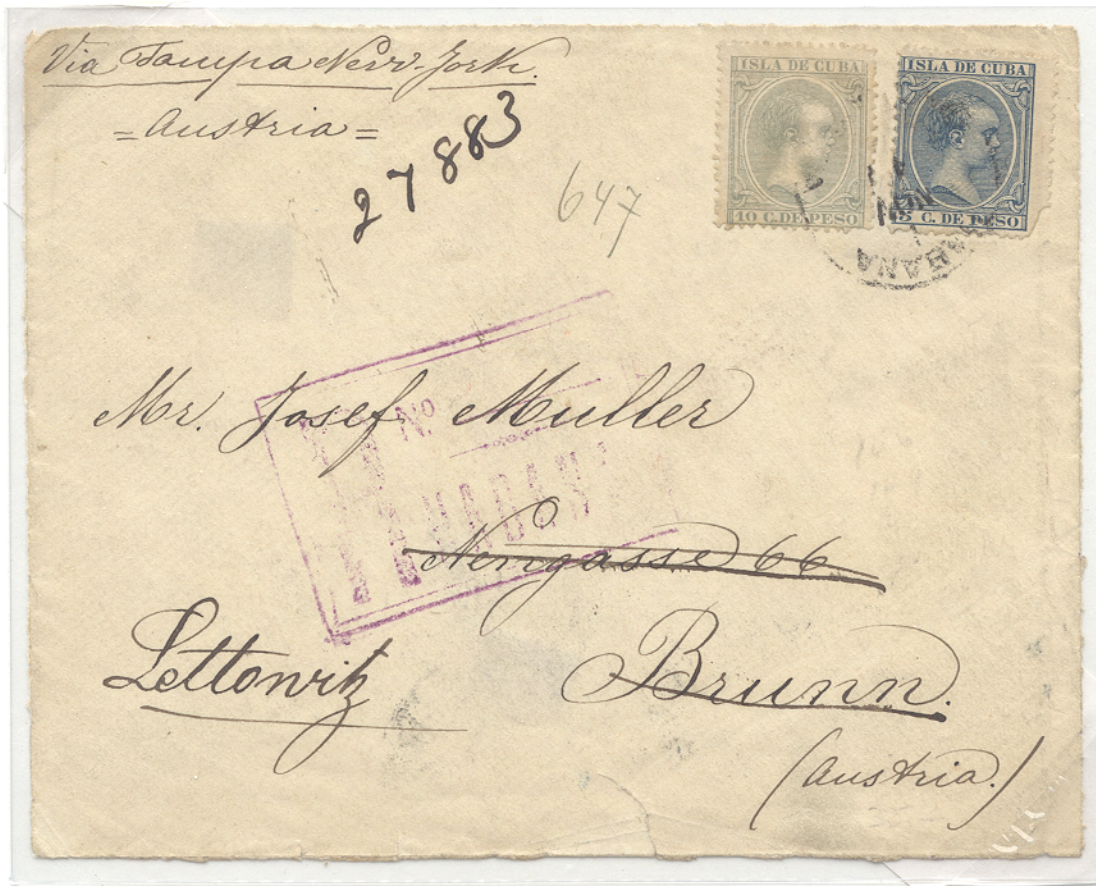 Via Tampa New-York.
= Austria =
27883
647
ISLA DE CUBA
10 C. DE PESO
ISLA DE CUBA
5 C. DE PESO
HABANA
Mr. Josef Muller
No.
HABANA
Neugasse 66
Lettowitz
Brunn.
(Austria.)